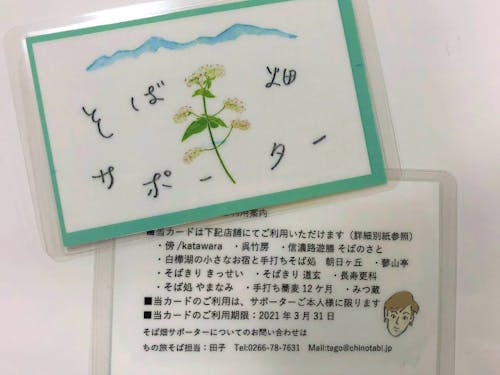 そば畑
サポーター
利用案内
■当カードは下記店舗にてご利用いただけます（詳細別紙参照）
・傍/katawara ・呉竹房 ・信濃路遊膳 そばのさと
・白樺湖の小さなお宿と手打ちそば処 朝日ヶ丘 ・蓼山亭
・そばきり きっせい ・そばきり 道玄 ・長寿更科
・そば処 やまなみ ・手打ち蕎麦 12ケ月 ・みつ蔵
■当カードのご利用は、サポーターご本人様に限ります
■当カードのご利用期限：2021年3月31日
そば畑サポーターについてのお問い合わせは
ちの旅そば担当：田子 Tel:0266-78-7631 Mail:tago@chinotabi.jp